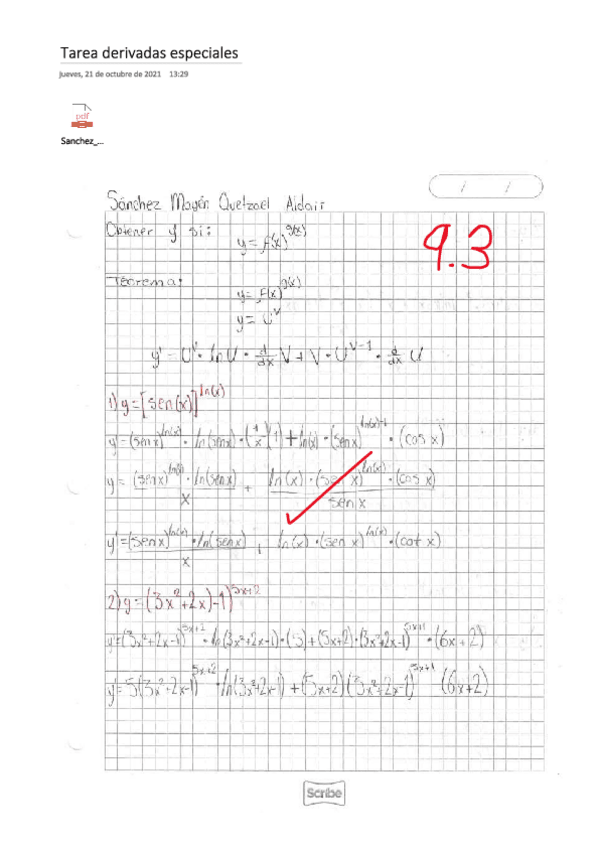 Tarea derivadas especiales
jueves, 21 de octubre de 2021 13:29
pdf
Sanchez_...
/ /
Sánchez Moyén Quetzael Aidair
Obtener y si: y = f(x)^g(x)
9.3
Teorema:
y = f(x)^g(x)
y = U^V
y' = U^V · ln U · d/dx V + V · U^(V-1) · d/dx U
1) y = [sen(x)]^ln(x)
y' = (sen x)^ln(x) · ln(sen x) · (1/x)(1) + ln(x) · (sen x)^(ln(x)-1) · (cos x)
y = (sen x)^ln(x) · ln(sen x) / x + ln(x) · (sen x)^ln(x) · (cos x) / sen x
y' = (sen x)^ln(x) · ln(sen x) / x + ln(x) · (sen x)^ln(x) · (cot x)
2) y = (3x²+2x)-1)^5x+2
y' = (3x²+2x-1)^5x+2 · ln(3x²+2x-1) · (5) + (5x+2) · (3x²+2x-1)^5x+1 · (6x+2)
y' = 5(3x²+2x-1)^5x+2 · ln(3x²+2x-1) + (5x+2)(3x²+2x-1)^5x+1 (6x+2)
Scribe